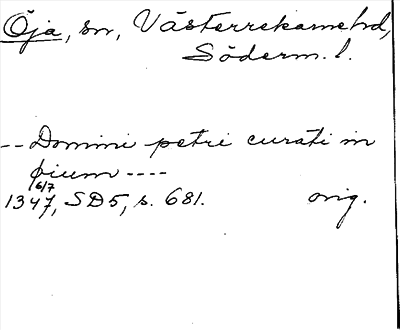 Öja, sn, Västerrekarne hd,
Söderm. l.
-- Domini petri curati in
øium ----
6/7
1347, SD5, s. 681. orig.